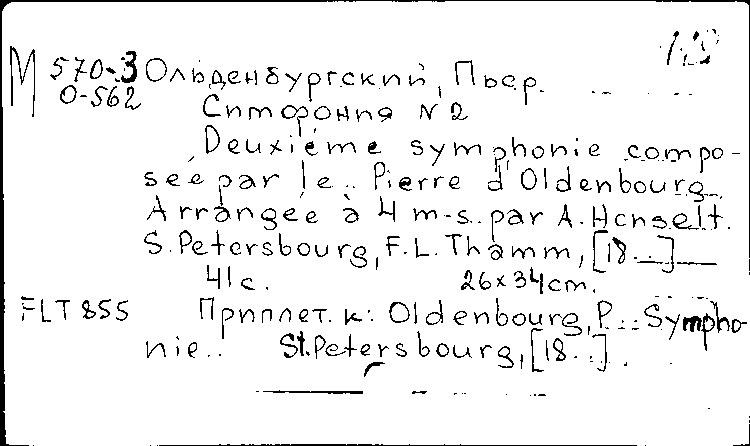 М 570-3 Ольденбургский, Пьер.
О-562 Симфония N 2
Deuxiéme symphonie compo-
seé par le.. Pierre d'Oldenbourg
Arrangée à 4 m-s. par A. Henselt.
S. Petersbourg, F.L. Thamm, [18..]
41 с. 26x34 cm.
FLT 855 Приплет. к: Oldenbourg, P... Sympho-
nie.. St. Petersbourg, [18..].